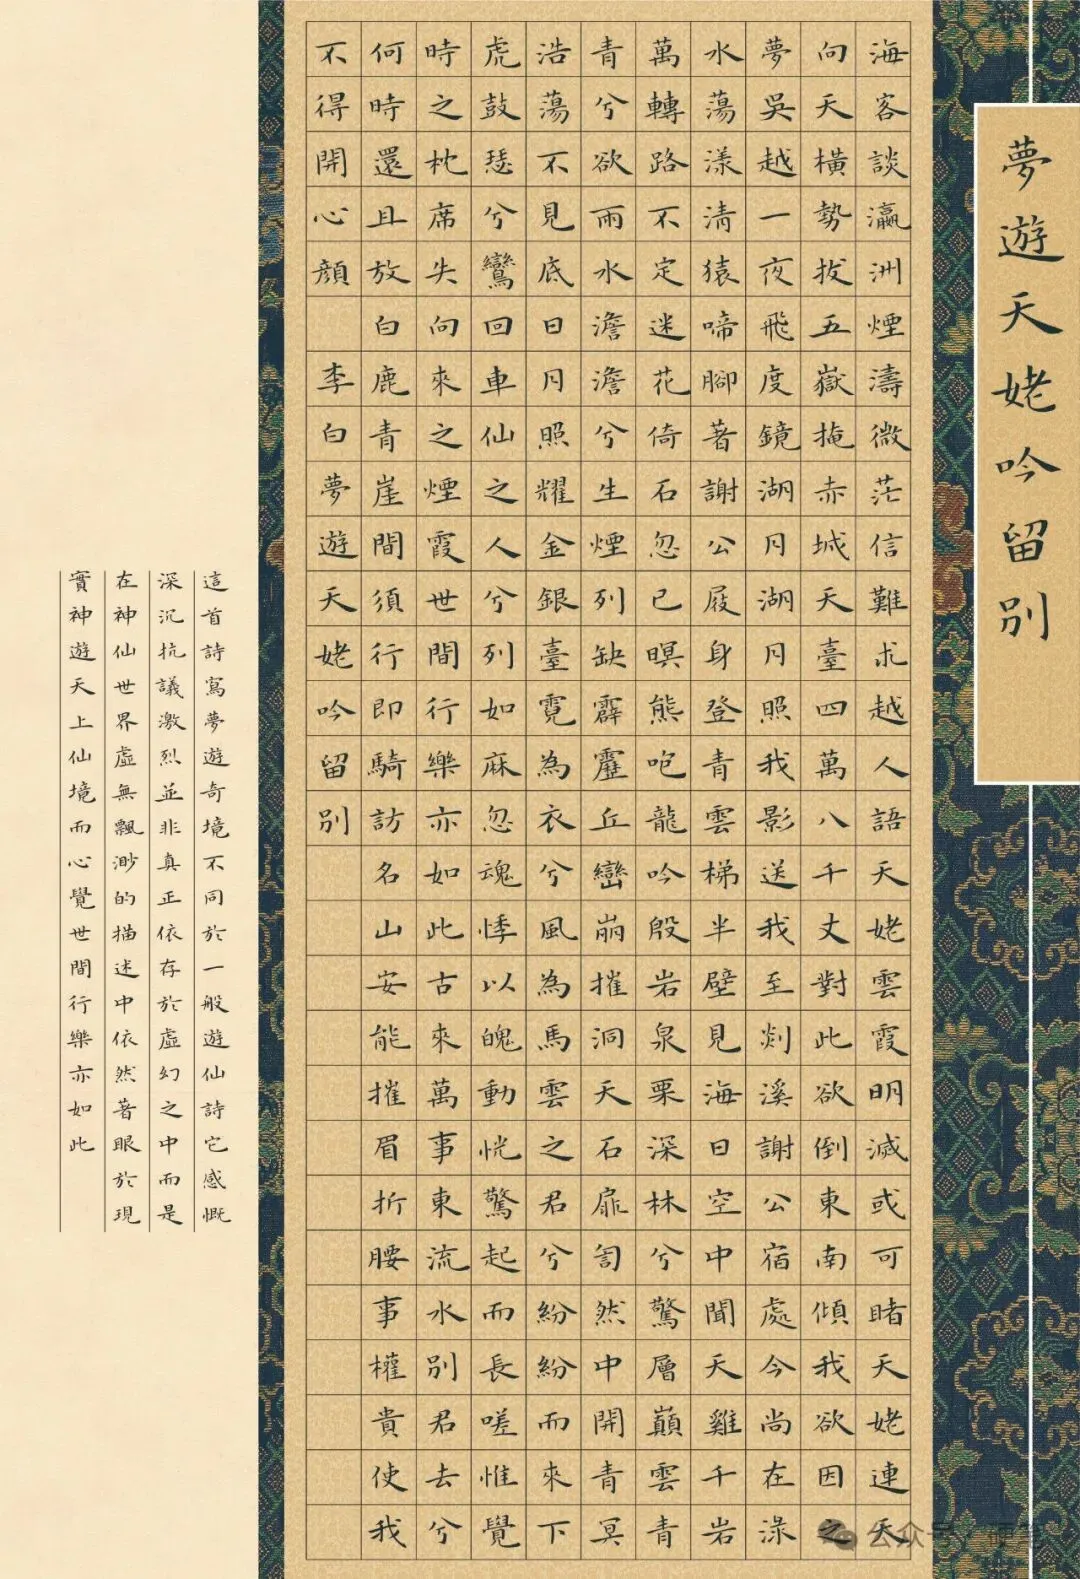 夢遊天姥吟留別
海客談瀛洲煙濤微茫信難求越人語天姥雲霞明滅或可睹天姥連天
向天橫勢拔五嶽掩赤城天臺四萬八千丈對此欲倒東南傾我欲因之
夢吳越一夜飛度鏡湖月湖月照我影送我至剡溪謝公宿處今尚在淥
水蕩漾清猿啼腳著謝公屐身登青雲梯半壁見海日空中聞天雞千岩
萬轉路不定迷花倚石忽已暝熊咆龍吟殷岩泉栗深林兮驚層巔雲青
青兮欲雨水澹澹兮生煙列缺霹靂丘巒崩摧洞天石扉訇然中開青冥
浩蕩不見底日月照耀金銀臺霓為衣兮風為馬雲之君兮紛紛而來下
虎鼓瑟兮鸞回車仙之人兮列如麻忽魂悸以魄動恍驚起而長嗟惟覺
時之枕席失向來之煙霞世間行樂亦如此古來萬事東流水別君去兮
何時還且放白鹿青崖間須行即騎訪名山安能摧眉折腰事權貴使我
不得開心顏 李白夢遊天姥吟留別
這首詩寫夢遊奇境不同於一般遊仙詩它感慨
深沉抗議激烈並非真正依存於虛幻之中而是
在神仙世界虛無飄渺的描述中依然著眼於現
實神遊天上仙境而心覺世間行樂亦如此
公众号